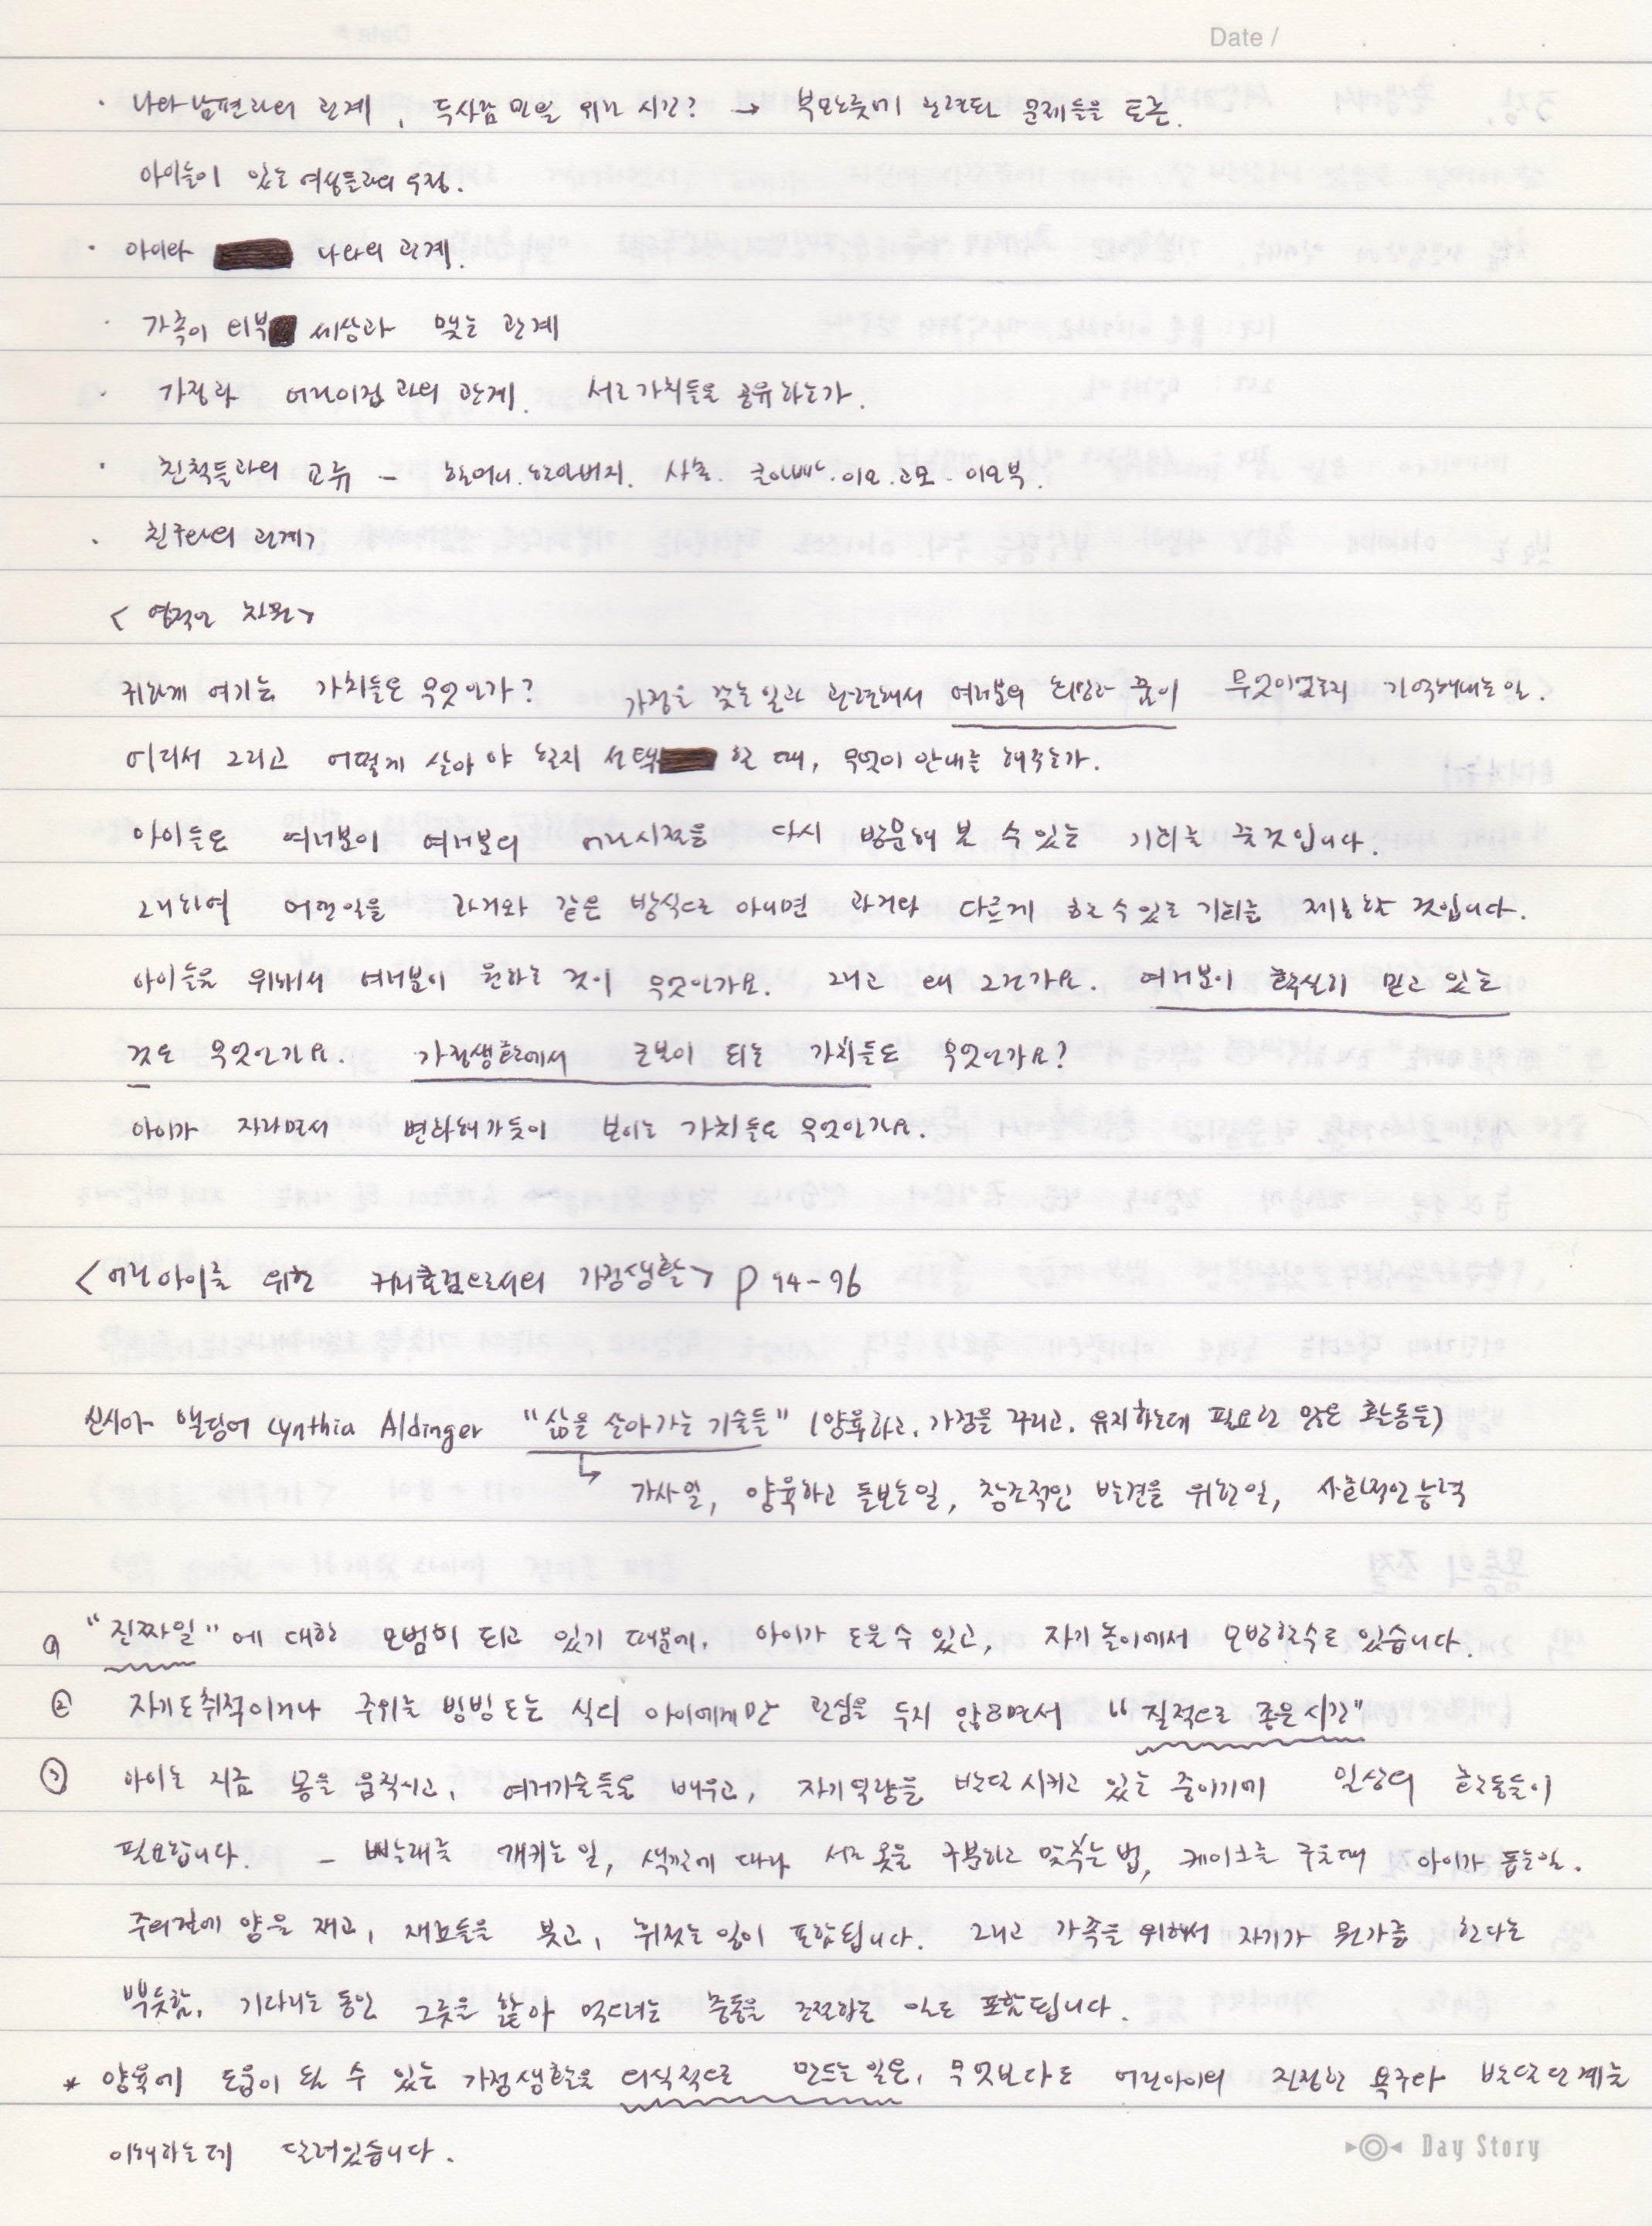 Date /
· 나와 남편과의 관계, 두사람 만을 위한 시간? → 부모노릇에 관련된 문제들을 토론.
아이들이 있는 여성들과의 우정.
· 아이와 나와의 관계.
· 가족이 외부 세상과 맺는 관계
· 가정과 어린이집 과의 관계. 서로 가치들을 공유하는가.
· 친척들과의 교류 - 할머니. 할아버지. 사촌. 큰아빠. 이모. 고모. 이모부.
· 친구와의 관계?
< 영적인 차원>
귀하게 여기는 가치들은 무엇인가? 가정을 갖는 일과 관련해서 여러분의 희망과 꿈이 무엇이었는지 기억해내는 일.
어디서 그리고 어떻게 살아 야 할지 선택 할 때, 무엇이 안내를 해주는가.
아이들은 여러분이 여러분의 어린시절을 다시 방문해 볼 수 있는 기회를 줄것입니다.
그리하여 어떤일을 과거와 같은 방식으로 아니면 과거와 다르게 할 수 있는 기회를 제공할 것입니다.
아이들을 위해서 여러분이 원하는 것이 무엇인가요. 그리고 왜 그런가요. 여러분이 확실히 믿고 있는
것은 무엇인가요. 가정생활에서 근본이 되는 가치들은 무엇인가요?
아이가 자라면서 변화해가듯이 보이는 가치들은 무엇인가요.
<어린 아이를 위한 커리큘럼으로서의 가정생활> p 94-96
신시아 앨딩어 Cynthia Aldinger "삶을 살아가는 기술들" (양육하고, 가정을 꾸리고, 유지하는데 필요한 많은 활동들)
가사일, 양육하고 돌보는일, 창조적인 발견을 위한일, 사회적인 능력
① "진짜일" 에 대한 모범이 되고 있기 때문에. 아이가 도울 수 있고, 자기 놀이에서 모방할수도 있습니다.
② 자기도취적이거나 주위를 빙빙 도는 식의 아이에게만 관심을 두지 않으면서 "질적으로 좋은 시간"
③ 아이는 지금 몸을 움직이고, 여러기술들을 배우고, 자기 역량을 발달 시키고 있는 중이기에 일상의 활동들이
필요합니다. - 빨래를 개키는 일, 색깔에 따라 서로 옷을 구분하고 맞추는 법, 케이크를 구울때 아이가 돕는일.
주의깊게 양을 재고, 재료들을 붓고, 휘젓는 일이 포함됩니다. 그리고 가족을 위해서 자기가 뭔가를 한다는
뿌듯함, 기다리는 동안 그릇을 핥아 먹으려는 충동을 조절하는 일도 포함됩니다.
* 양육에 도움이 될 수 있는 가정생활을 의식적으로 만드는 일은, 무엇보다도 어린아이의 진정한 욕구와 발달단계를
이해하는데 달려있습니다.
Day Story